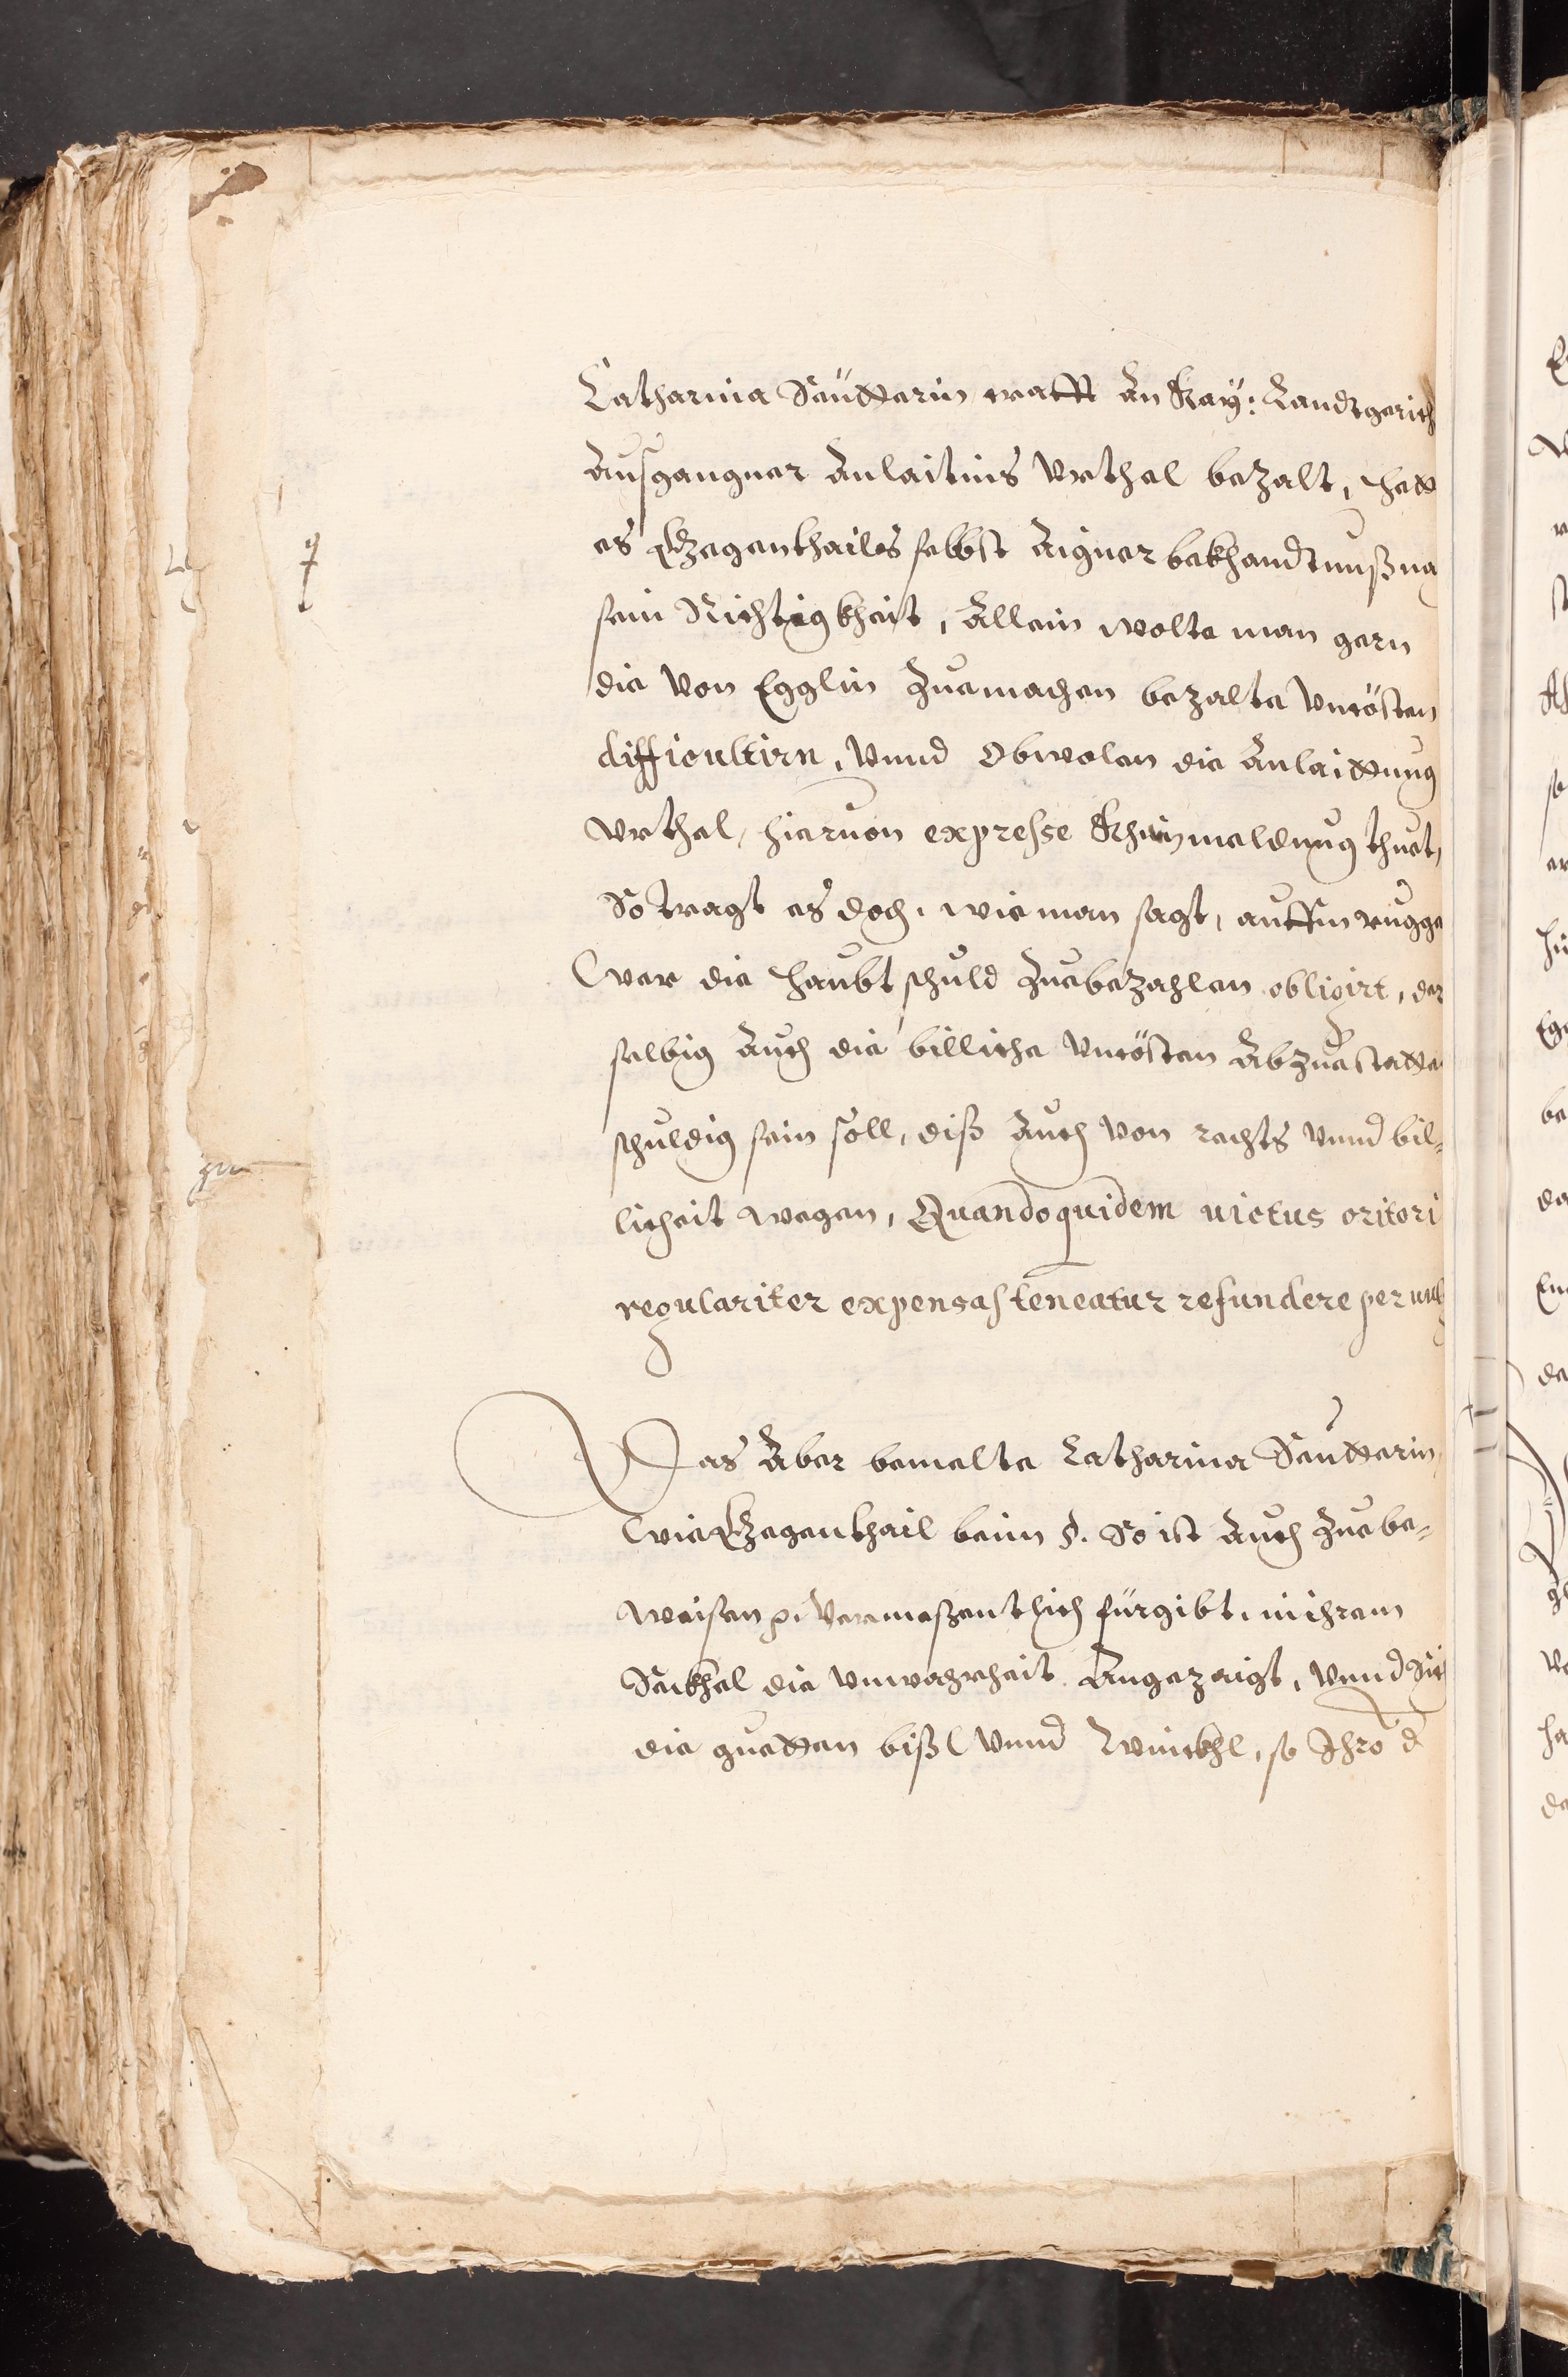 Catharina Sautterin crafft An Kay: Landtgerich
Ausgangner Anlaitins Vrthel bezalt, hatt
es Gegenthailes selbst Aigner bekhandtnuß na
sein Richtigkheit, Allein wolte man gern
die Von Egglin Zuemachen bezalte Vncösten
difficultirn, Vnnd Obwolen die Anlaittung
Vrthel, hieruon expresse Khein meldung thuet,
So tragt es doch, wie man sagt, auffm rugge
Wer die haubt schuld Zuebezahlen obligirt, der
selbig Auch die billiche Vncösten Abzuestatte
schuldig sein soll, diß Auch Von rechts Vnnd bil¬
licheit wegen, Quandoquidem uictus uictori
regulariter expensas teneatur refundere per uulg
Das Aber bemelte Catharina Sautterin,
Wie Gegenthail beim §. So ist Auch Zuebe¬
weisen p. Vermeßentlich fürgibt, in ihrem
Seckhel die Vnwahrheit Angezaigt, Vnnd Sich
die guetten bißl Vnnd Trinckhl, so Ihro d